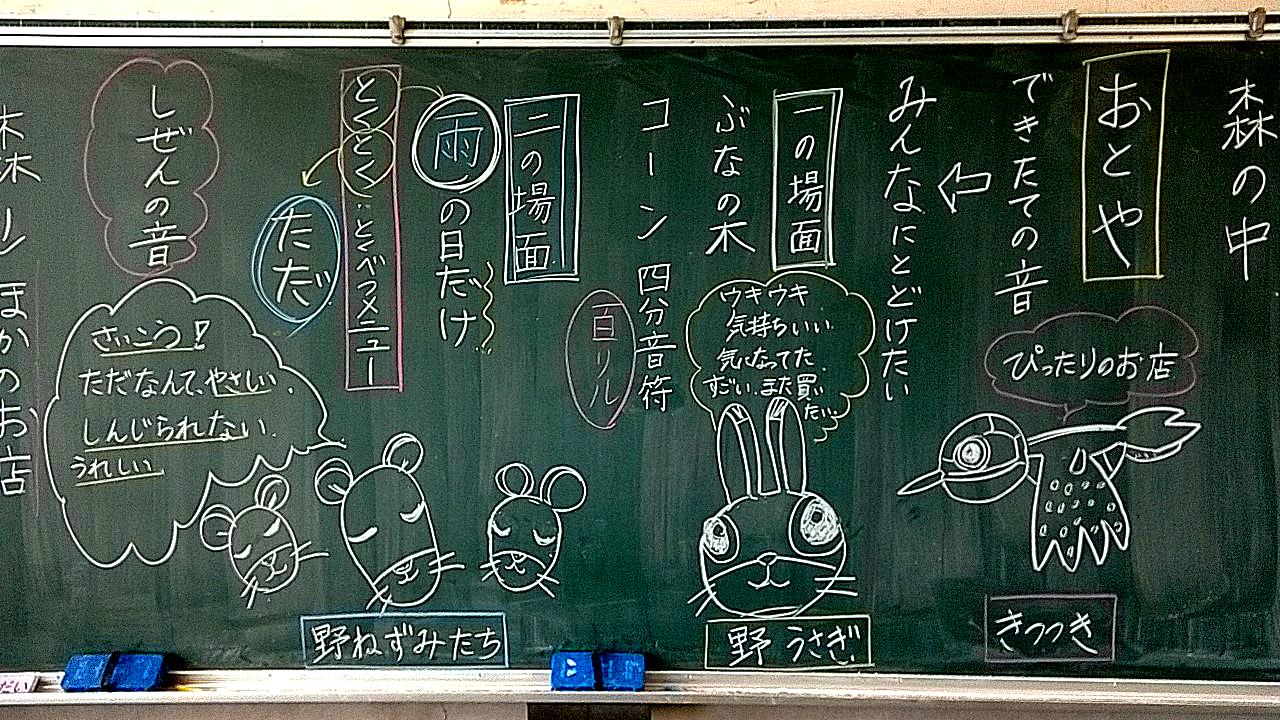 森の中
おとや
できたての音
ぴったりのお店
きつつき
みんなにとどけたい
一の場面
ぶなの木
ウキウキ
気持ちいい
気になってた
すごい、また買い
たい。
野うさぎ
コーン 四分音符
百リル
二の場面
雨の日だけ
とくとく
とくべつメニュー
ただ
野ねずみたち
しぜんの音
さいこう!
ただなんて、やさしい。
しんじられない。
うれしい。
ほかのお店